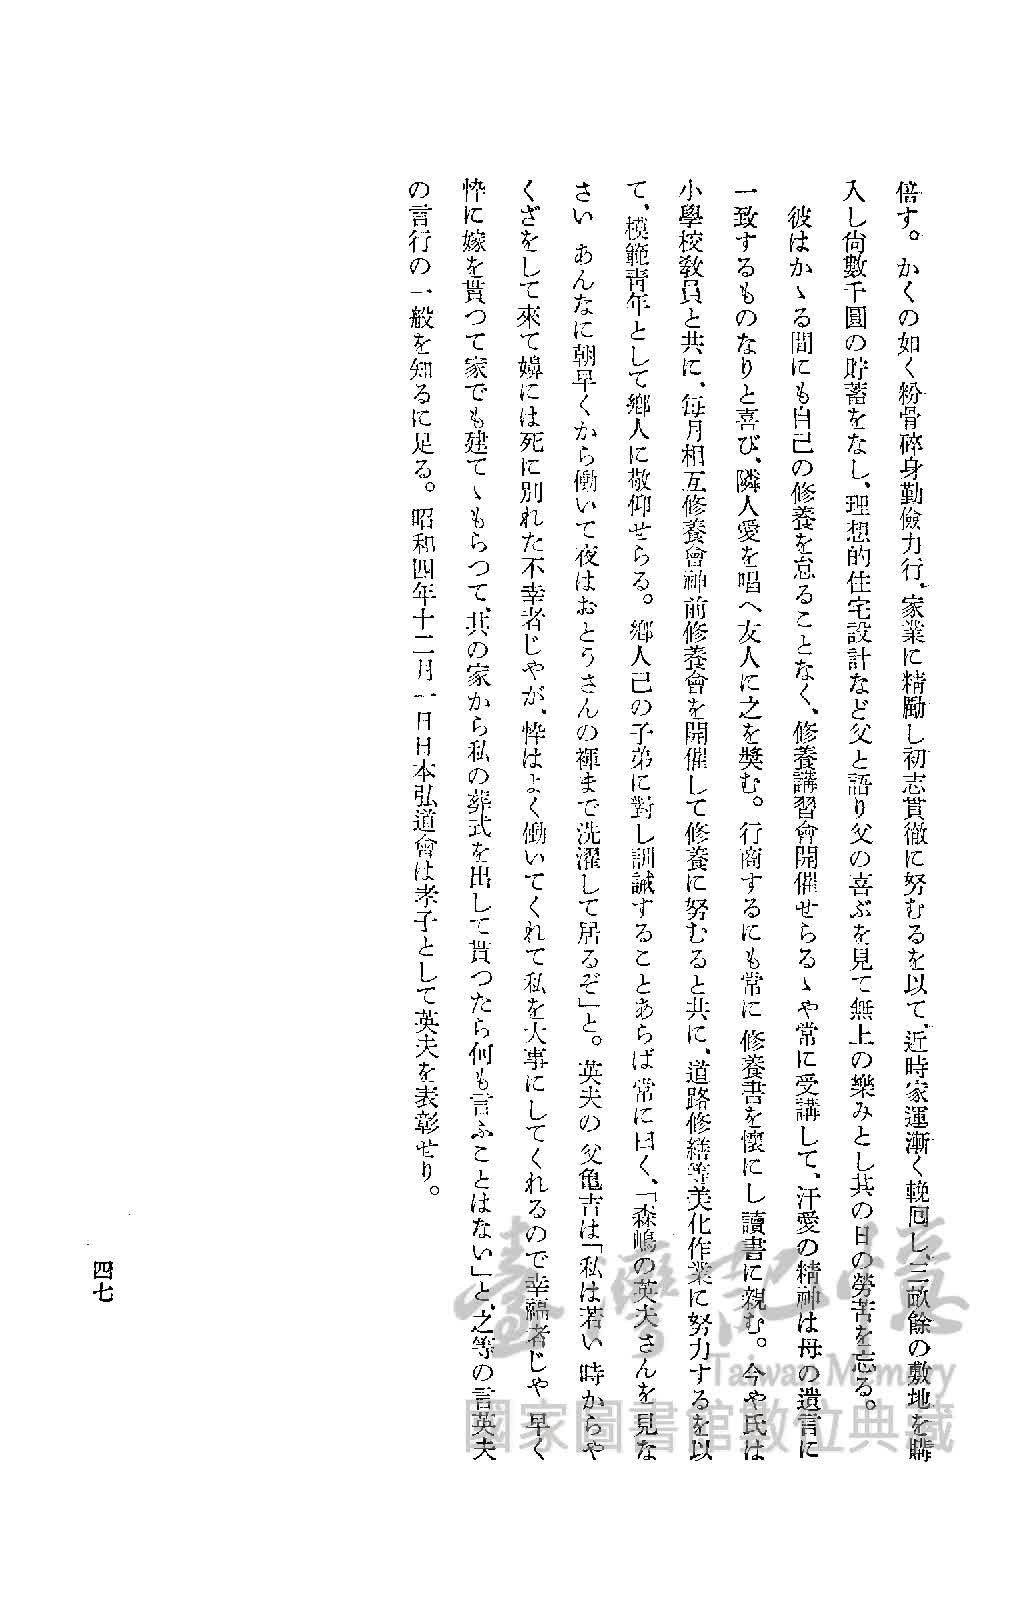 倍す。かくの如く粉骨碎身勤儉力行、家業に精勵し初志貫徹に努むるを以て、近時家運漸く輓囘し、三畝餘の敷地を購
入し尙數千圓の貯蓄をなし、理想的住宅設計など父と語り父の喜ぶを見て無上の樂みとし其の日の勞苦を忘る。
彼はかゝる間にも自己の修養を怠ることなく、修養講習會開催せらるゝや常に受講して、汗愛の精神は母の遺言に
一致するものなりと喜び、隣人愛を唱へ友人に之を奬む。行商するにも常に修養書を懷にし讀書に親む。今や氏は
小學校敎員と共に、每月相互修養會神前修養會を開催して修養に努むると共に、道路修繕等美化作業に努力するを以
て、模範靑年として鄕人に敬仰せらる。鄕人己の子弟に對し訓誡することあらば常に曰く、「森嶋の英夫さんを見な
さい あんなに朝早くから働いて夜はおとうさんの褌まで洗濯して居るぞ」と。英夫の父亀吉は「私は若い時からや
くざをして來て嬶には死に別れた不幸者じやが、忰はよく働いてくれて私を大事にしてくれるので幸福者じや 早く
忰に嫁を貰つて家でも建てゝもらつて、其の家から私の葬式を出して貰つたら何も言ふことはない」と、之等の言英夫
の言行の一般を知るに足る。昭和四年十二月一日日本弘道會は孝子として英夫を表彰せり。
四七
臺灣記憶
Taiwan Memory
國家圖書館數位典藏